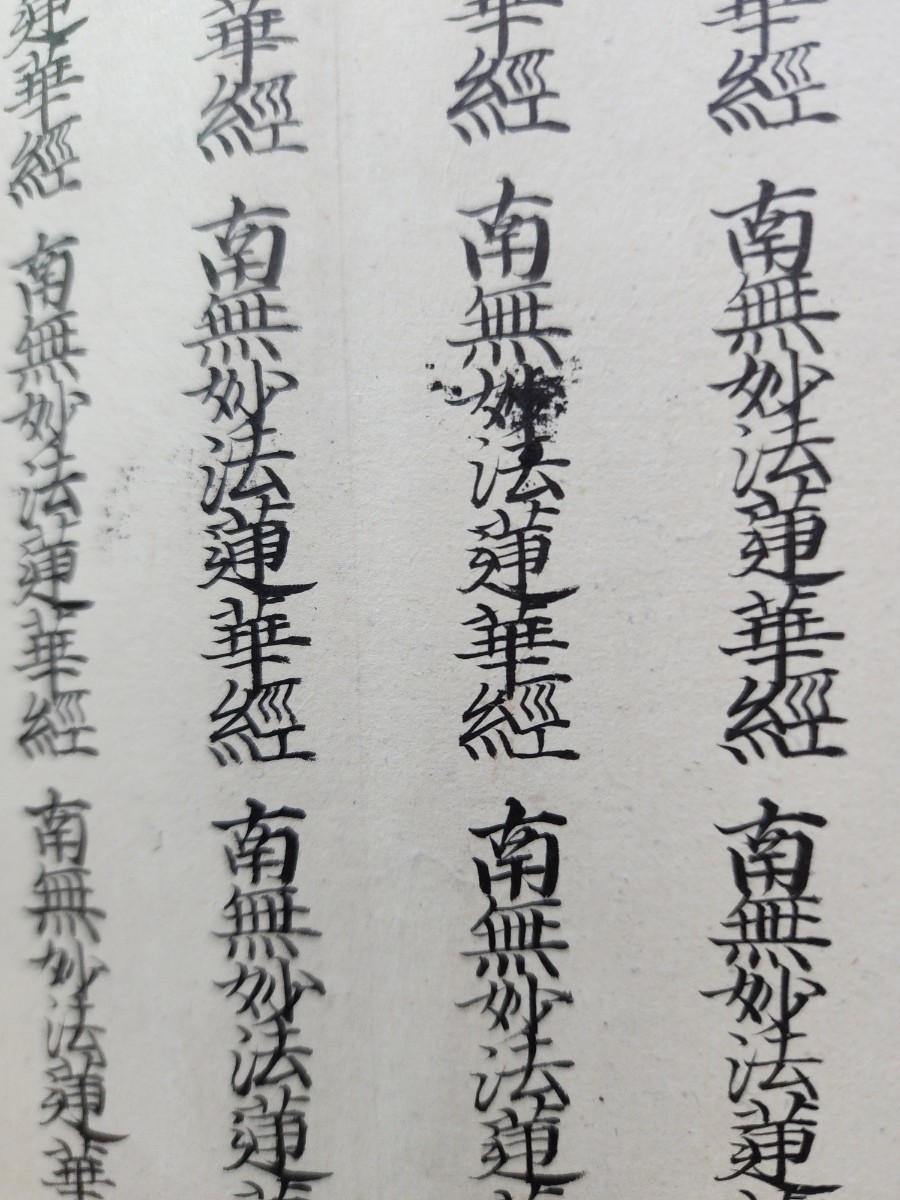 華經 南無妙法蓮華經 南無妙法蓮
華經 南無妙法蓮華經 南無妙法蓮
華經 南無妙法蓮華經 南無妙法蓮
蓮華經 南無妙法蓮華經 南無妙法蓮華